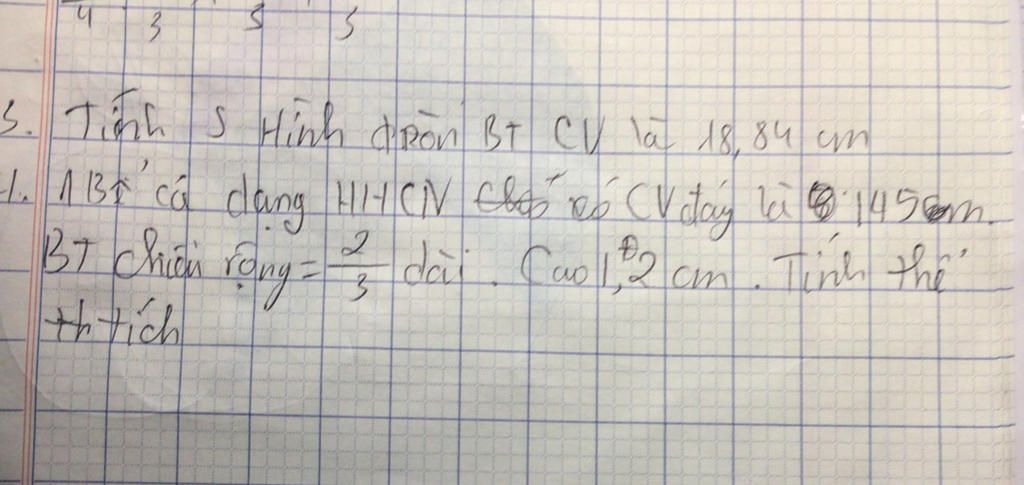 4 3 5 5
3. Tính S Hình tròn BT CV là 18,84 cm
1 Bể có dạng HHCN có CV đáy là 145 m.
BT chiều rộng = 2/3 dài. Cao 1,2 cm. Tính thể
tích